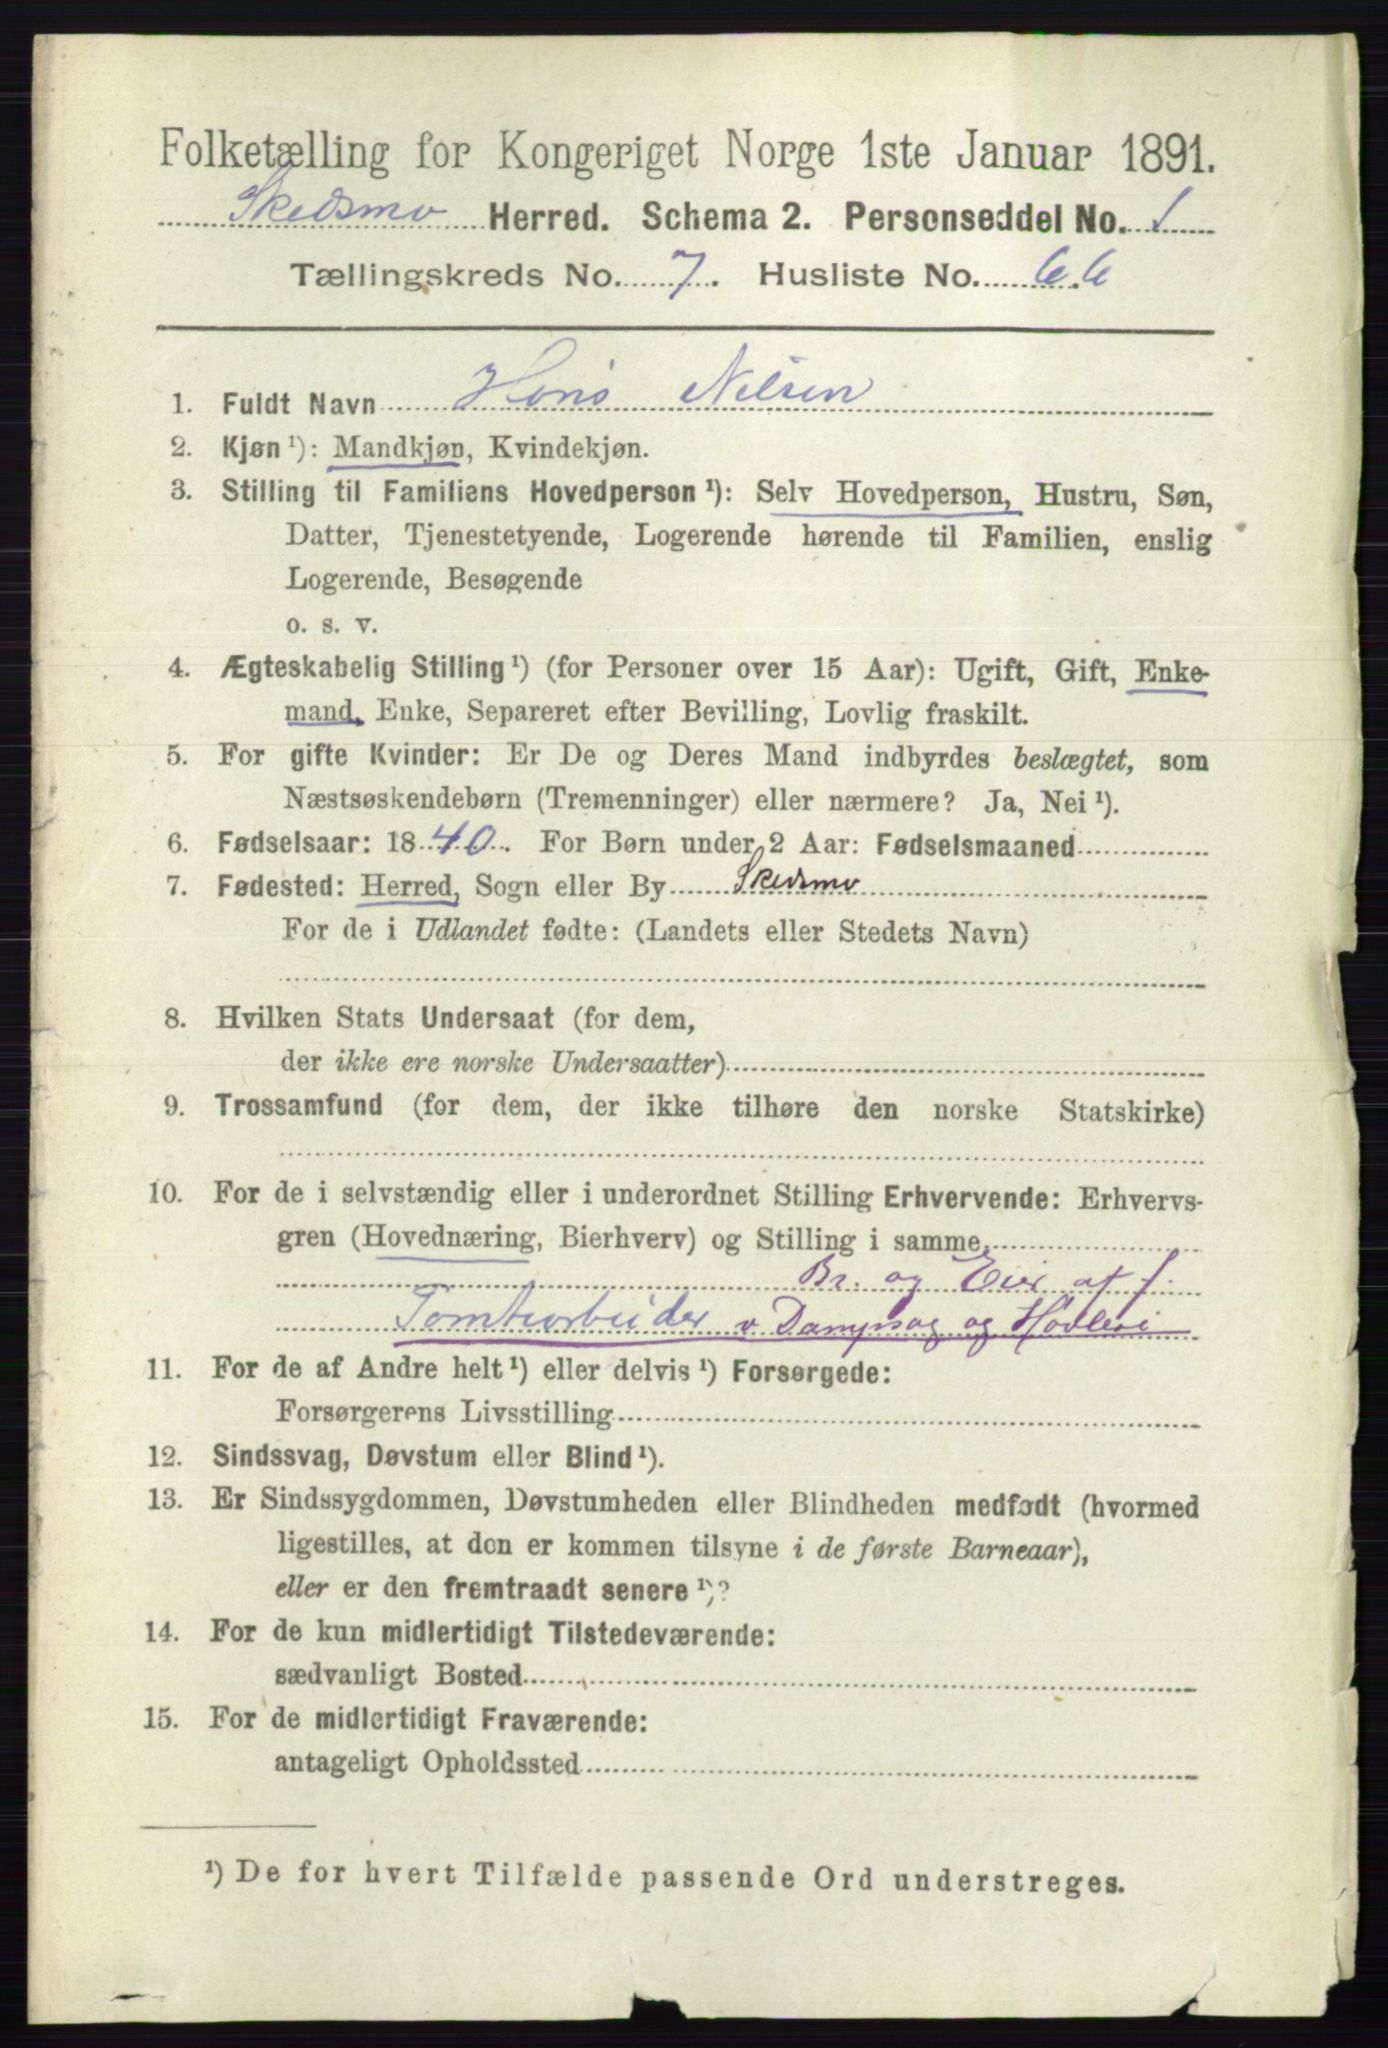 Folketælling for Kongeriget Norge 1ste Januar 1891.
Skedsmo Herred. Schema 2. Personseddel No. 1
Tællingskreds No. 7. Husliste No. 66
1. Fuldt Navn Hans Nilsen
2. Kjøn ¹): Mandkjøn, Kvindekjøn.
3. Stilling til Familiens Hovedperson ¹): Selv Hovedperson, Hustru, Søn,
Datter, Tjenestetyende, Logerende hørende til Familien, enslig
Logerende, Besøgende
o. s. v.
4. Ægteskabelig Stilling ¹) (for Personer over 15 Aar): Ugift, Gift, Enke-
mand, Enke, Separeret efter Bevilling, Lovlig fraskilt.
5. For gifte Kvinder: Er De og Deres Mand indbyrdes beslægtet, som
Næstsøskendebørn (Tremenninger) eller nærmere? Ja, Nei ¹).
6. Fødselsaar: 1840. For Børn under 2 Aar: Fødselsmaaned
7. Fødested: Herred, Sogn eller By Skedsmo
For de i Udlandet fødte: (Landets eller Stedets Navn)
8. Hvilken Stats Undersaat (for dem,
der ikke ere norske Undersaatter)
9. Trossamfund (for dem, der ikke tilhøre den norske Statskirke)
10. For de i selvstændig eller i underordnet Stilling Erhvervende: Erhvervs-
gren (Hovednæring, Bierhverv) og Stilling i samme
Br. og Eier af J.
Tomtearbeider v Dampsag og Høvleri
11. For de af Andre helt ¹) eller delvis ¹) Forsørgede:
Forsørgerens Livsstilling
12. Sindssvag, Døvstum eller Blind ¹).
13. Er Sindssygdommen, Døvstumheden eller Blindheden medfødt (hvormed
ligestilles, at den er kommen tilsyne i de første Barneaar),
eller er den fremtraadt senere ¹)?
14. For de kun midlertidigt Tilstedeværende:
sædvanligt Bosted
15. For de midlertidigt Fraværende:
antageligt Opholdssted
¹) De for hvert Tilfælde passende Ord understreges.